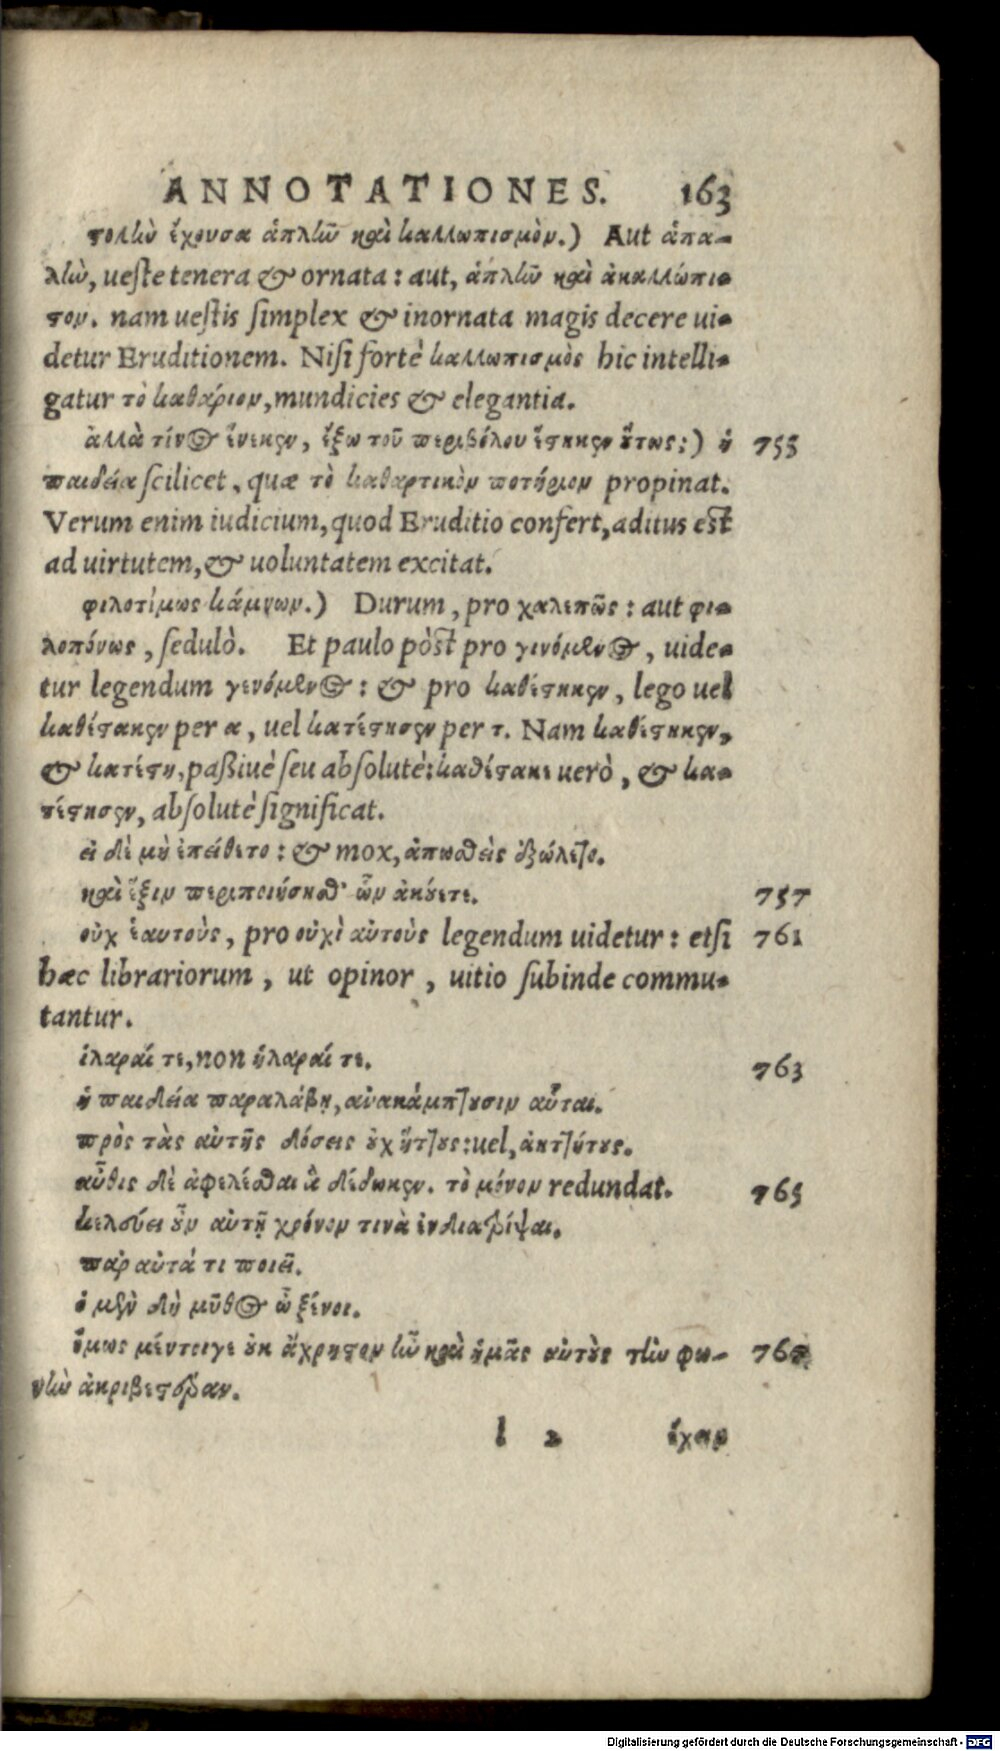 ANNOTATIONES. 163
στολὴν ἔχουσα ἁπλῆν καὶ καλλωπισμὸν.) Aut ἁπα-
λὴν, ueste tenera & ornata: aut, ἁπλῆν καὶ ἀκαλλώπι-
στον. nam uestis simplex & inornata magis decere ui-
detur Eruditionem. Nisi fortè καλλωπισμὸς hic intelli-
gatur τὸ καθάριον, mundicies & elegantia.
ἀλλὰ τίνος ἕνεκεν, ἔξω τοῦ περιβόλου ἕστηκεν οὕτως;) ἡ 755
παιδεία scilicet, quæ τὸ καθαρτικὸν ποτήριον propinat.
Verum enim iudicium, quod Eruditio confert, aditus est
ad uirtutem, & uoluntatem excitat.
φιλοτίμως κάμνων.) Durum, pro χαλεπῶς: aut φι-
λοπόνως, sedulò. Et paulo pòst pro γινόμενος, uide-
tur legendum γενόμενος: & pro καθέστηκεν, lego uel
καθέστακεν per α, uel κατέστησεν per τ. Nam καθέστηκεν,
& κατέστη, passiuè seu absolutè: καθέστακε uerò, & κα-
τέστησεν, absolutè significat.
εἰ δὲ μὴ ἐπείθετο: & mox, ἀπωσθεὶς ἐξώλετο.
καὶ ἕξιν περιποιήσησθ' ὧν ἀκούετε. 757
οὐχ ἑαυτοὺς, pro οὐχὶ αὐτοὺς legendum uidetur: etsi 761
hæc librariorum, ut opinor, uitio subinde commu-
tantur.
ἱλαραί τε, non ἡλαραί τε. 763
ἡ παιδεία παραλάβῃ, ἀνακάμπτουσιν αὗται.
πρὸς τὰς αὐτῆς δόσεις οὐχ ἥττους: uel, ἀηττήτους.
αὖθις δὲ ἀφελέσθαι ἃ δέδωκεν. τὸ μόνον redundat. 765
κελεύει οὖν αὐτῇ χρόνον τινὰ ἐνδιατρίψαι.
παρ αὐτά τι ποιεῖ.
ὁ μὲν δὴ μῦθος ὦ ξένοι.
ὅμως μέντοιγε οὐκ ἄχρηστον ἦν καὶ ἡμᾶς αὐτοὺς τὴν φω-
νὴν ἀκριβεστέραν.
l 2 ἔχειν